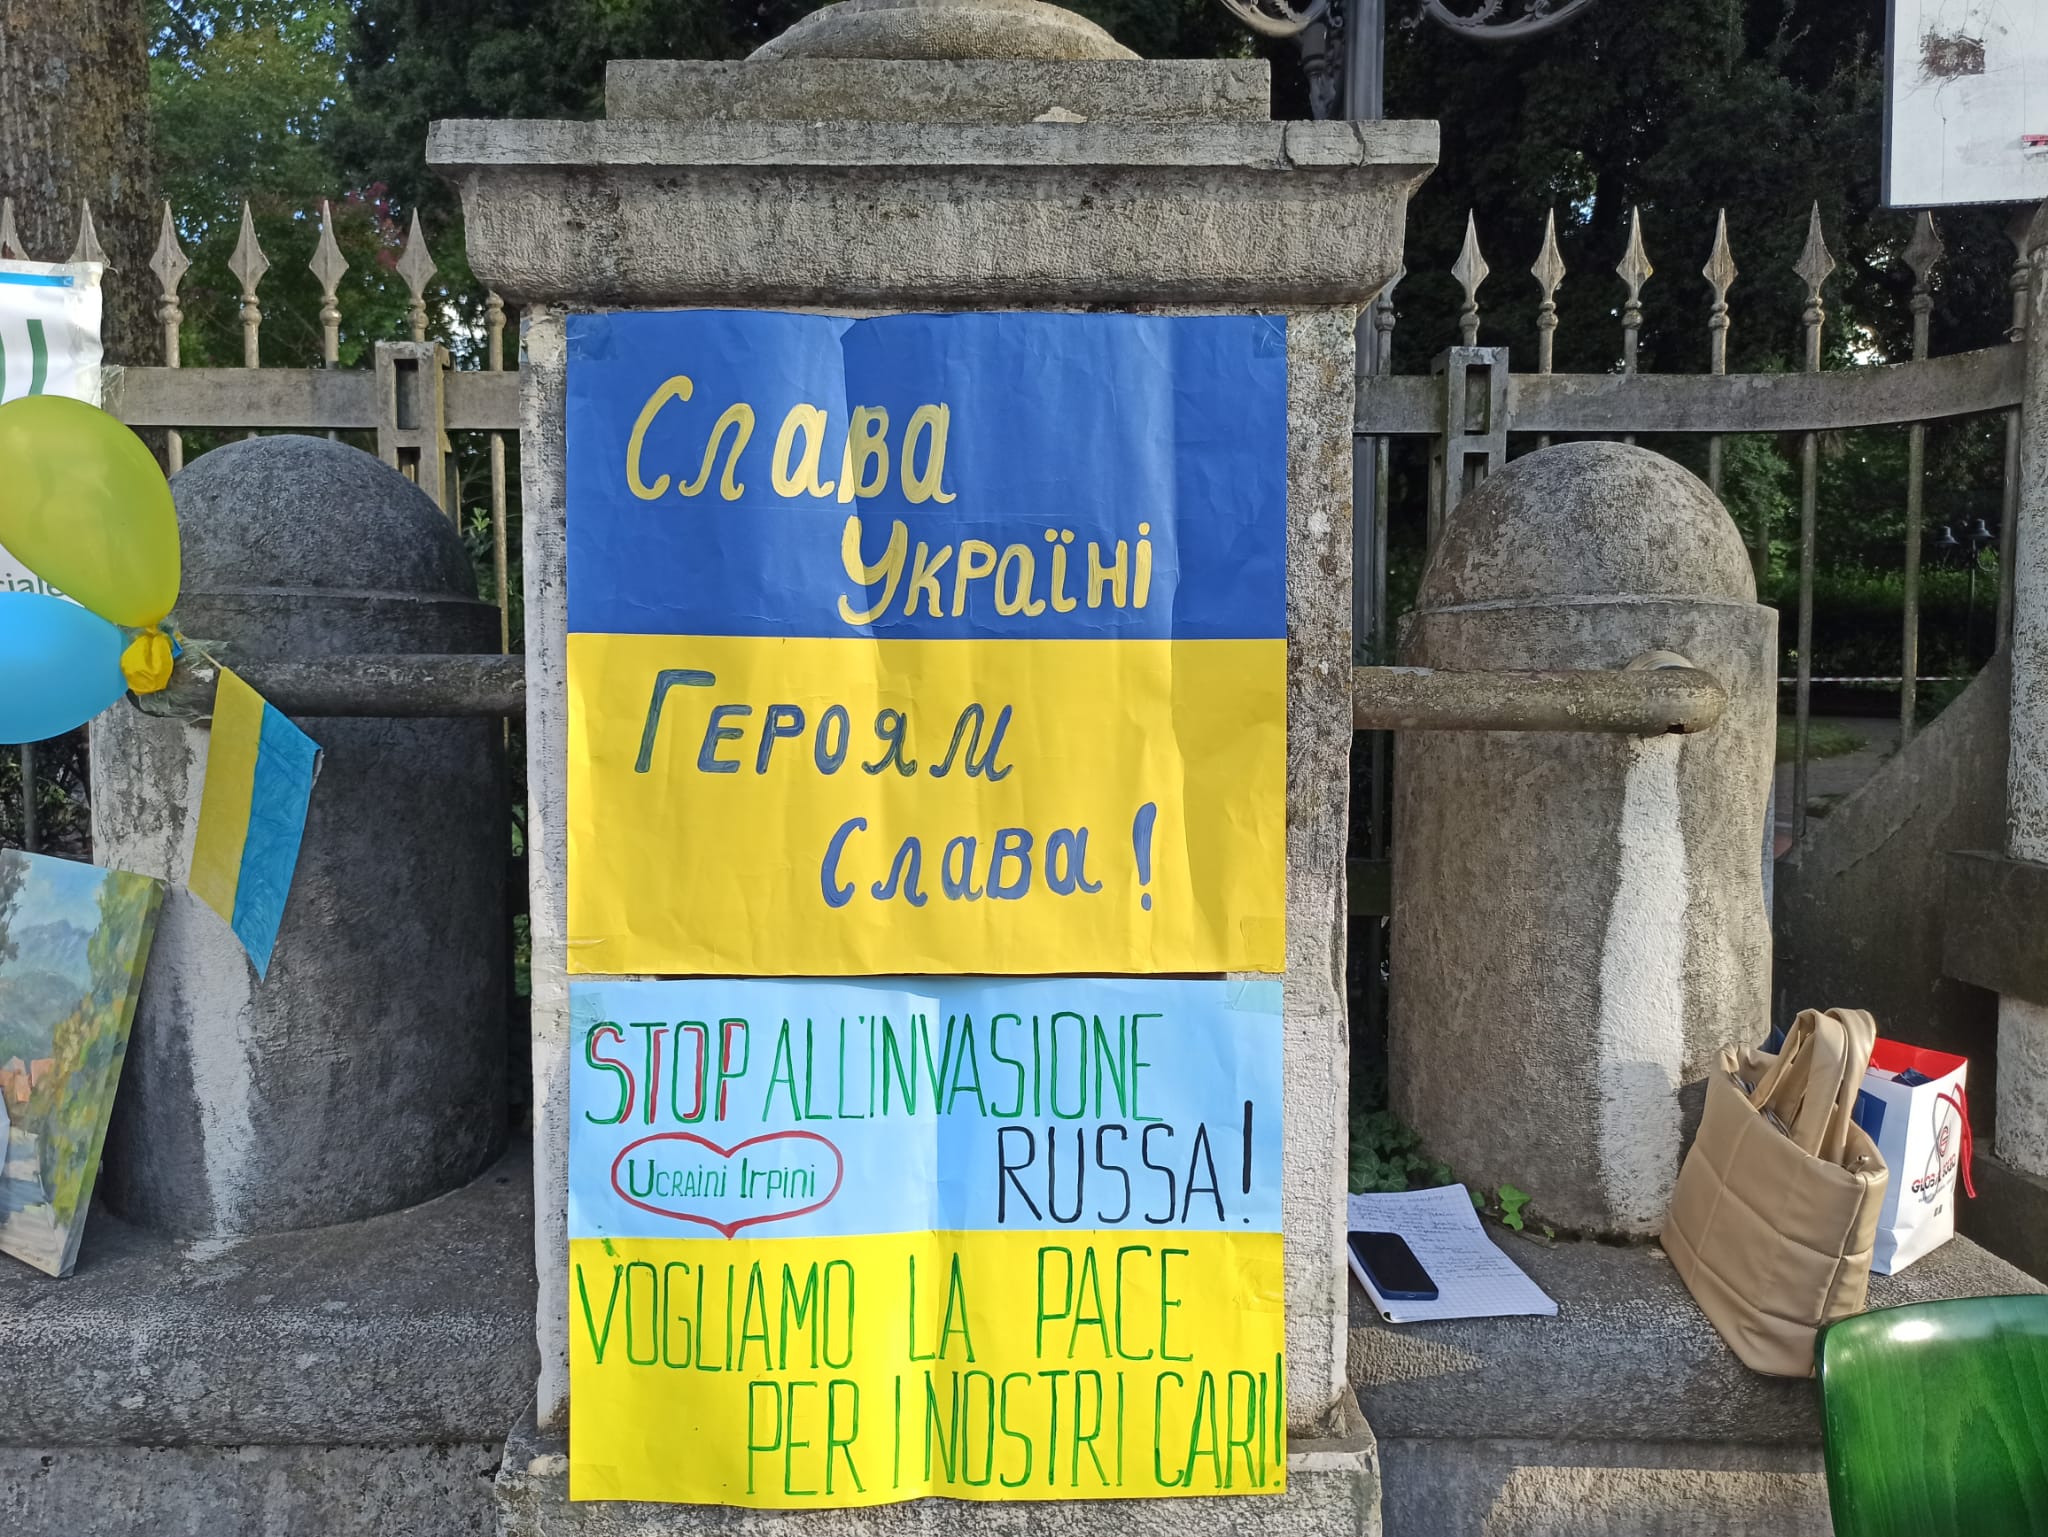 Слава
Україні
Героям
Слава!
STOP ALL'INVASIONE
RUSSA!
UCRAINI IRPINI
VOGLIAMO LA PACE
PER I NOSTRI CARI!